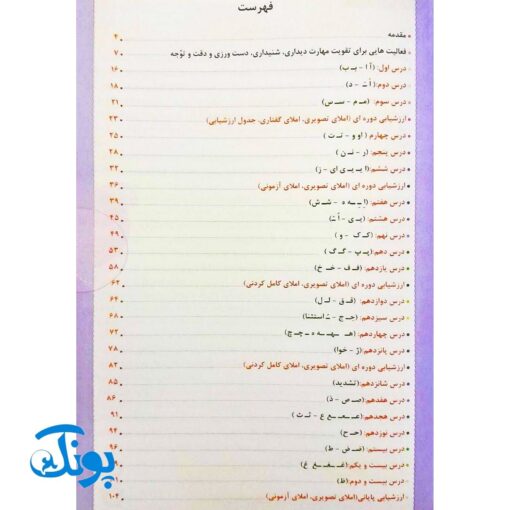 فهرست
مقدمه ۴
فعالیت هایی برای تقویت مهارت دیداری، شنیداری، دست ورزی و دقت و توجه ۷
درس اول: (آ ا - بـ ب) ۱۶
درس دوم: (اَ ـَ - د) ۱۸
درس سوم: (مـ م - سـ س) ۲۱
ارزشیابی دوره ای (املای تصویری، املای گفتاری، جدول ارزشیابی) ۲۳
درس چهارم (او و - تـ ت) ۲۵
درس پنجم: (ر - نـ ن) ۲۸
درس ششم: (ایـ یـ ی ای - ز) ۳۲
ارزشیابی دوره ای (املای تصویری، املای آزمونی) ۳۶
درس هفتم: (اِ ـِ ـه ه - شـ ش) ۳۹
درس هشتم: (یـ ی - اُ ـُ) ۴۵
درس نهم: (کـ ک - و) ۴۹
درس دهم: (پـ پ - گـ گ) ۵۳
درس یازدهم: (فـ ف - خـ خ) ۵۸
ارزشیابی دوره ای (املای تصویری، املای کامل کردنی) ۶۲
درس دوازدهم: (قـ ق - لـ ل) ۶۴
درس سیزدهم: (جـ ج - ـُ استثنا) ۶۸
درس چهاردهم: (هـ ـهـ ـه ه - چـ چ) ۷۲
درس پانزدهم: (ژ - خوا) ۷۸
ارزشیابی دوره ای (املای تصویری، املای کامل کردنی) ۸۳
درس شانزدهم: (تشدید) ۸۵
درس هفدهم: (صـ ص - ذ) ۸۶
درس هجدهم: (عـ ـعـ ـع ع - ثـ ث) ۹۱
درس نوزدهم: (حـ ح) ۹۴
درس بیستم: (ضـ ض - ط) ۹۶
درس بیست و یکم: (غـ ـغـ ـغ غ)
درس بیست و دوم: (ظ)
ارزشیابی پایانی (املای تصویری، املای آزمونی) ۱۰۴
پونک